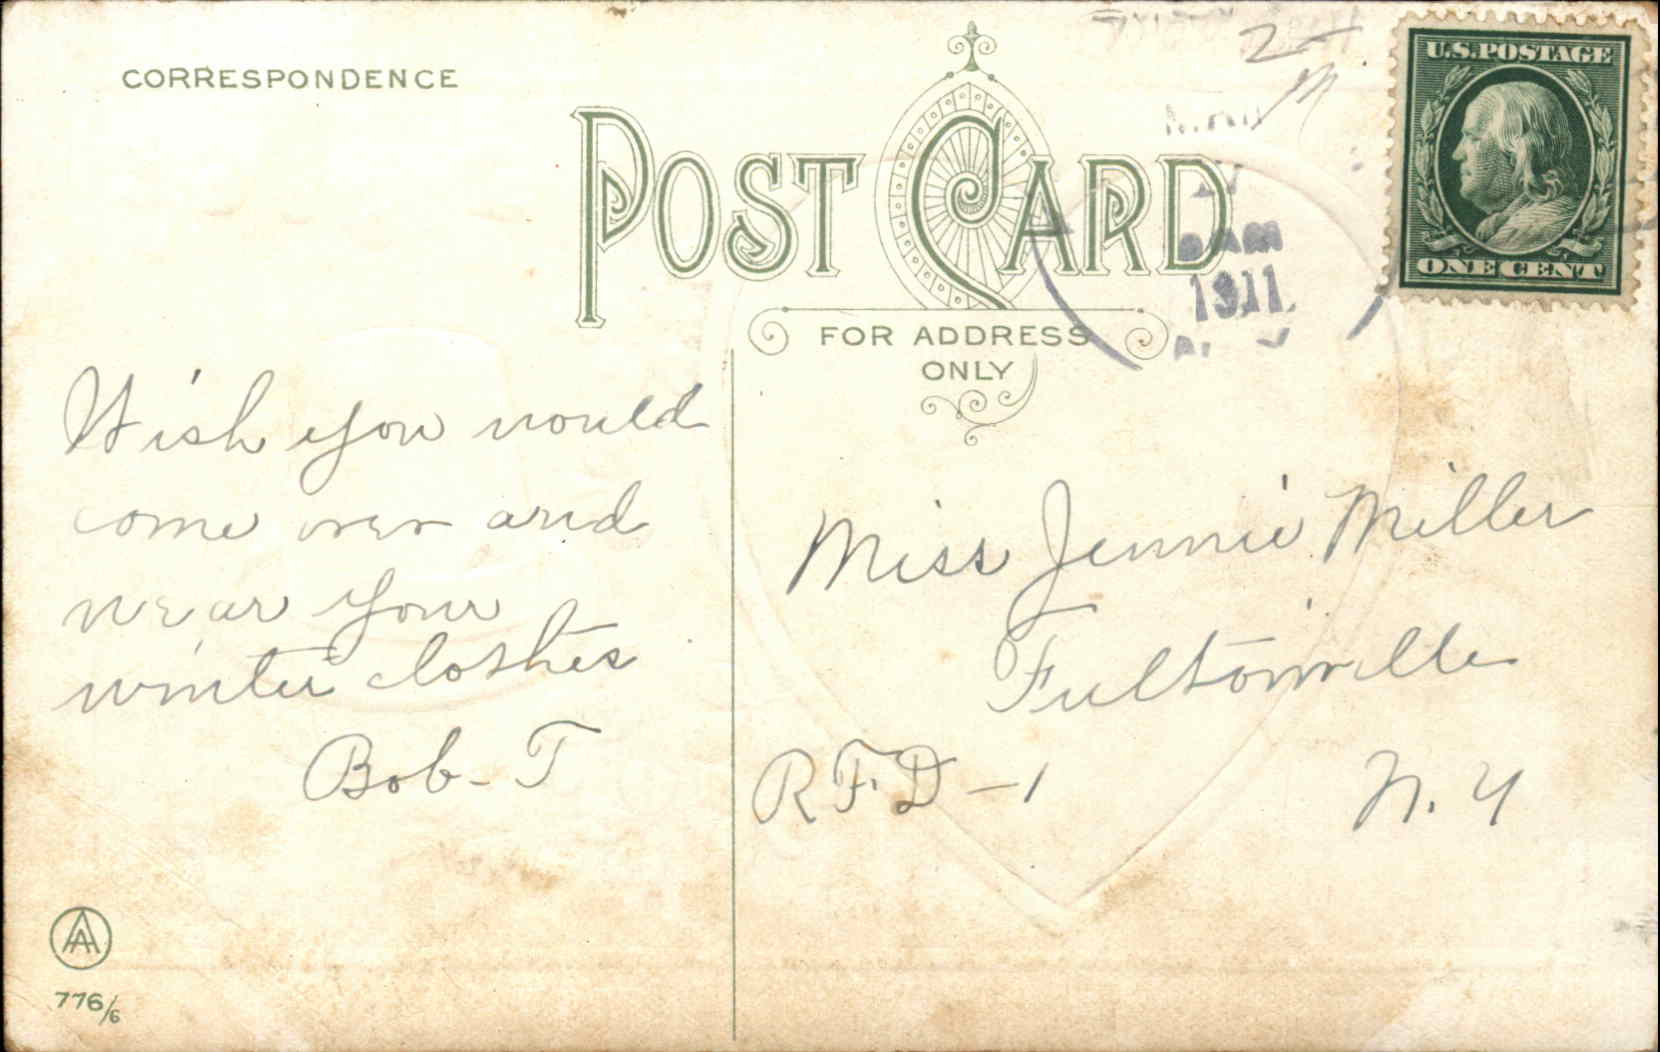 CORRESPONDENCE
POST CARD
FOR ADDRESS
ONLY
U.S. POSTAGE
ONE CENT
2
M
AM
1911
Wish you would
come over and
wear your
winter clothes
Bob - T
Miss Jennie Miller
Fultonville
R.F.D - 1 N. Y
AA
776/6